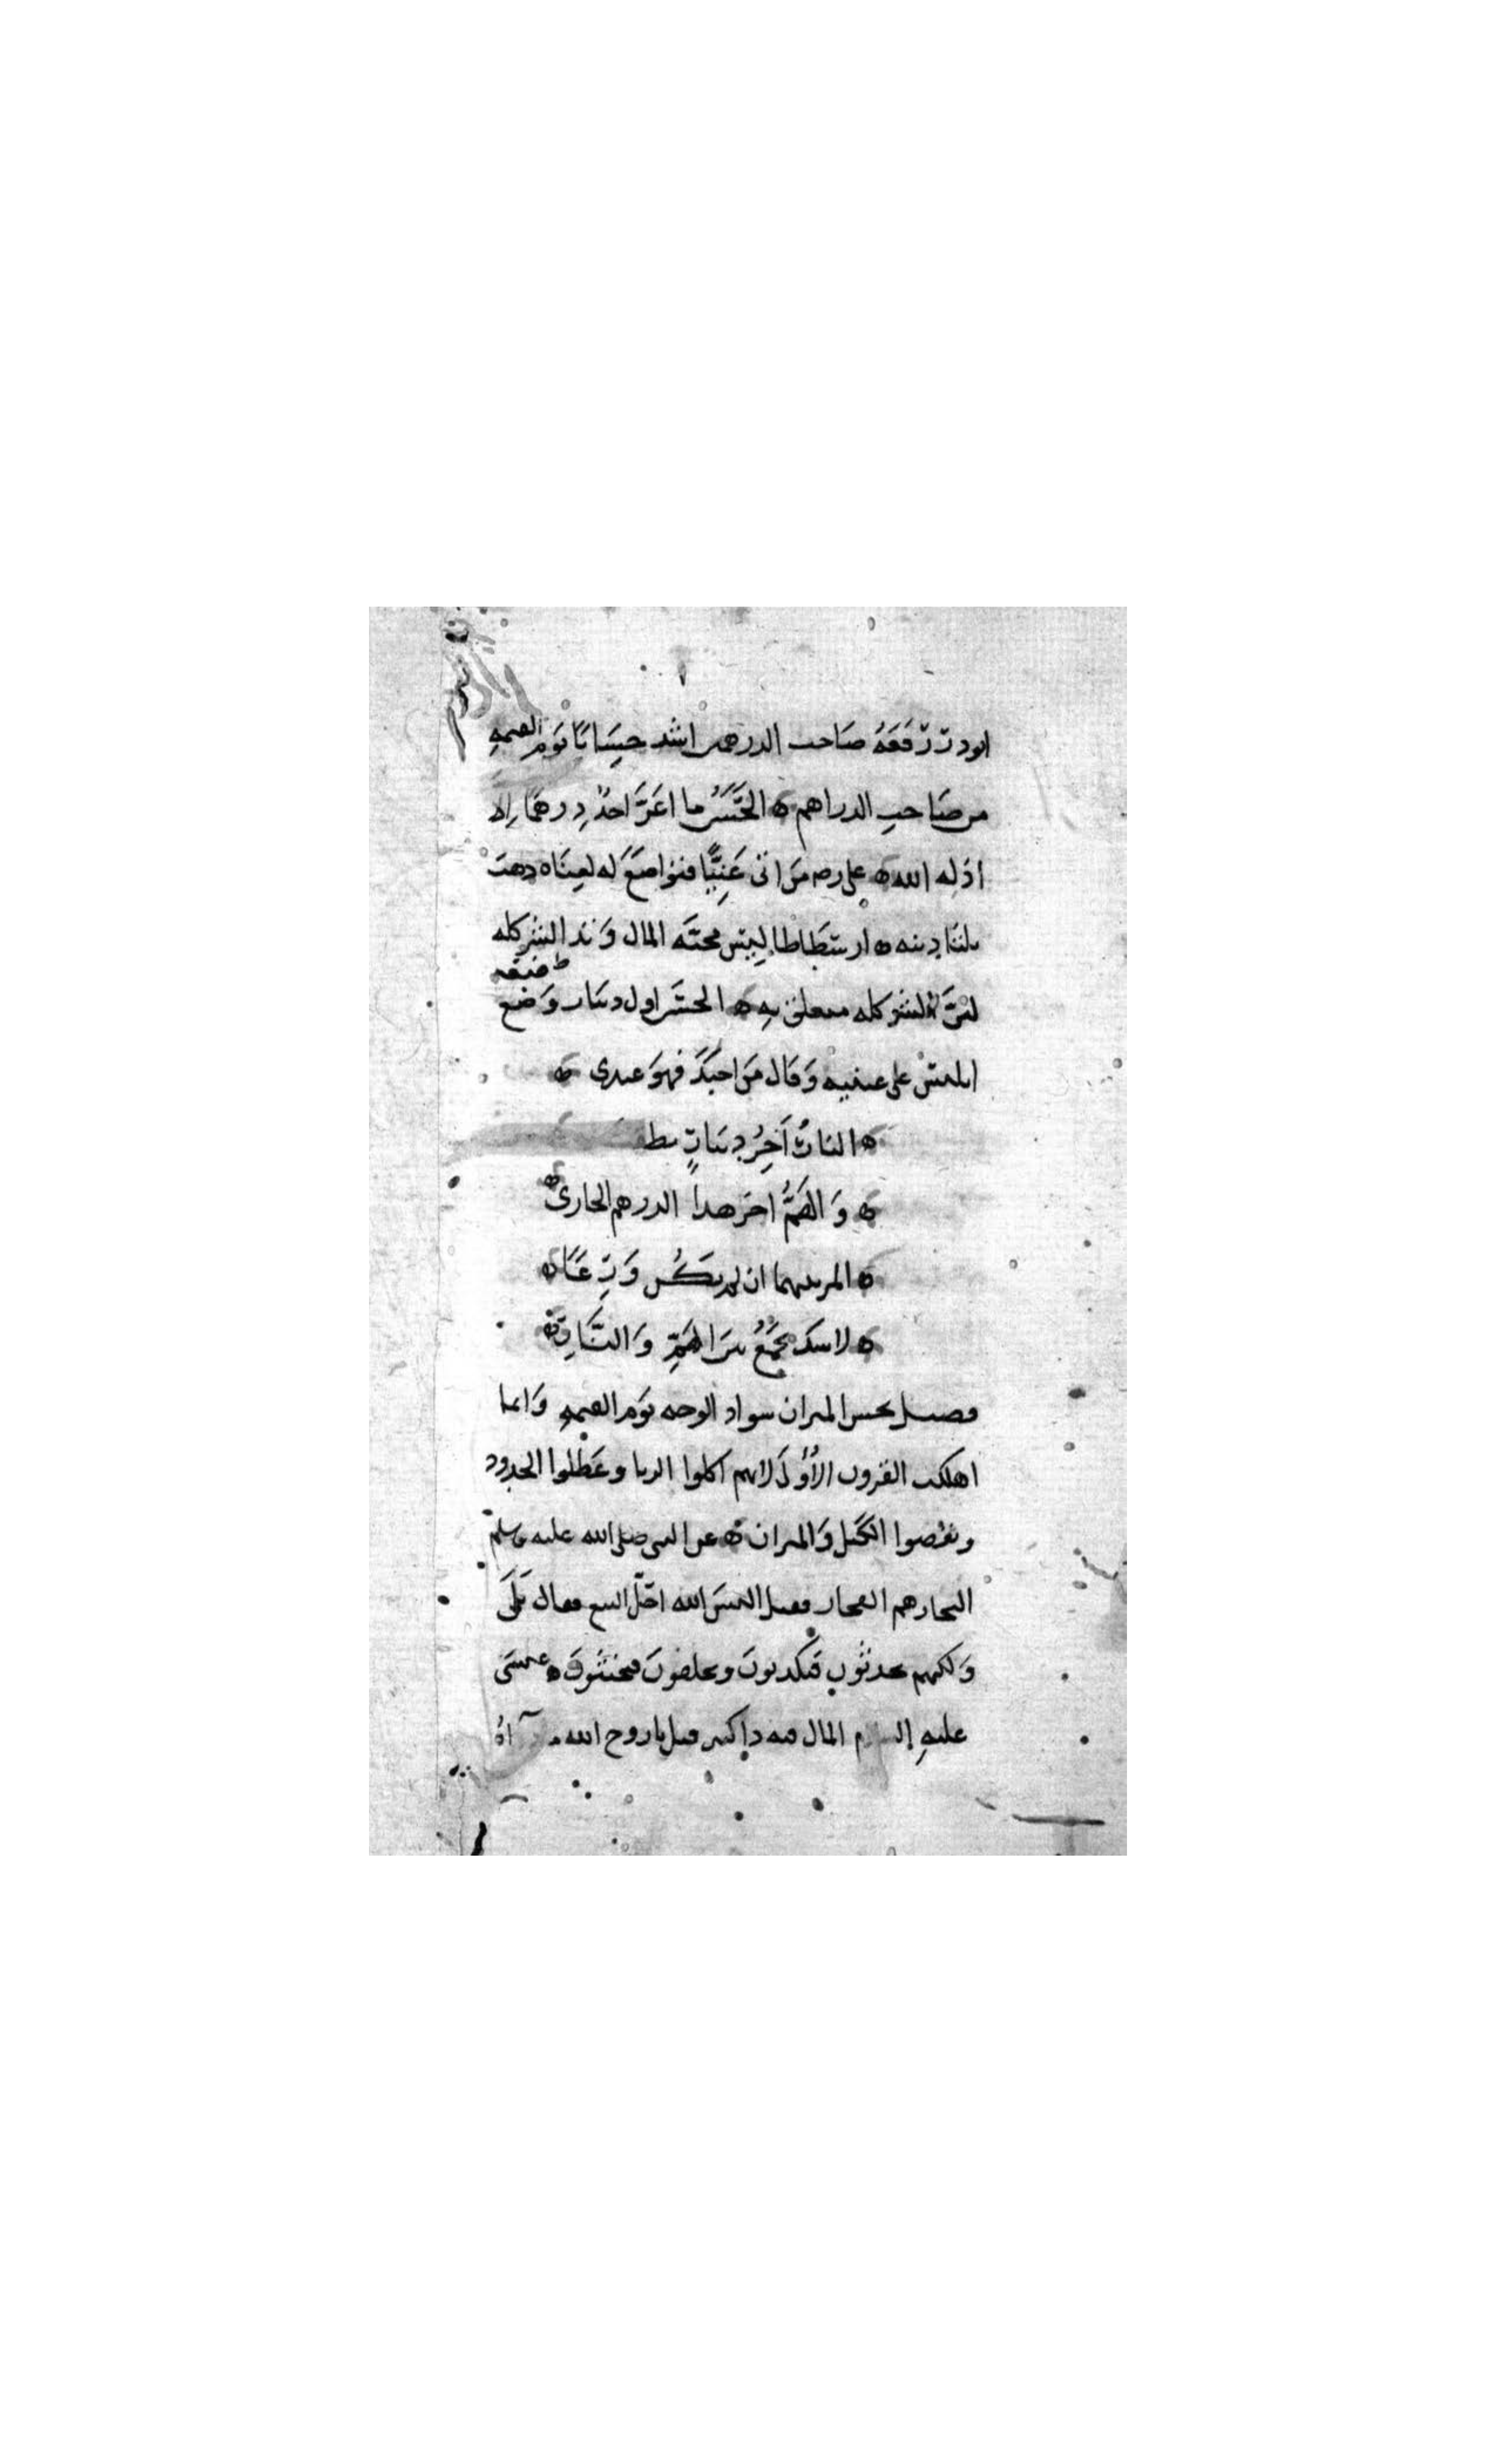 ابو ذر رفعه صاحب الدرهمين اشد حِسَابًا يَوم القيمة
من صَاحبِ الدراهم ه الحَسَنُ ما اعَزَّ احدٌ دِرهَمًا اِلا
اذله الله ه على رضه مَن اتى غَنِيًّا فتواضَعَ له لغِنَاه ذهبَ
ثلثا دينه ه ارسَطَاطاليس محبَّه المال وَتد الشر كله
لانَّ الشر كله متعلق بِهِ ه الحسَن اول دينار وَضع
ابليس على عينيه وَقال مَن احبَكَ فهوَ عبدى ه
ه النارُ آخِرُ دِينارٍ نطقتَ
ه وَ الهَمُّ اخر هذا الدرهم الجارى ه
ه المرء بينهما ان لم يكُن وَرِعًا ه
ه لا شك يُجمَعُ بينَ الهَمِّ وَالنَّارِ ه
فصيل بخس الميزان سواد الوجه يَوم القيمه وَانما
اهلكت القرون الأُوْلَى لانهم اكلوا الربا وعَطَّلوا الحدود
ونقصوا الكَيل وَالميزان ه عن النبى صلى الله عليه وسلم
التجار هم الفجار فقيل اليسَ الله احَلَّ البيع فقال بَلَى
وَلكنهم يحدثون فيَكذبونَ ويحلفونَ فيحنثونَ ه عيسَى
عليهِ السلام المال فيه داء كثير قيل يا روح الله